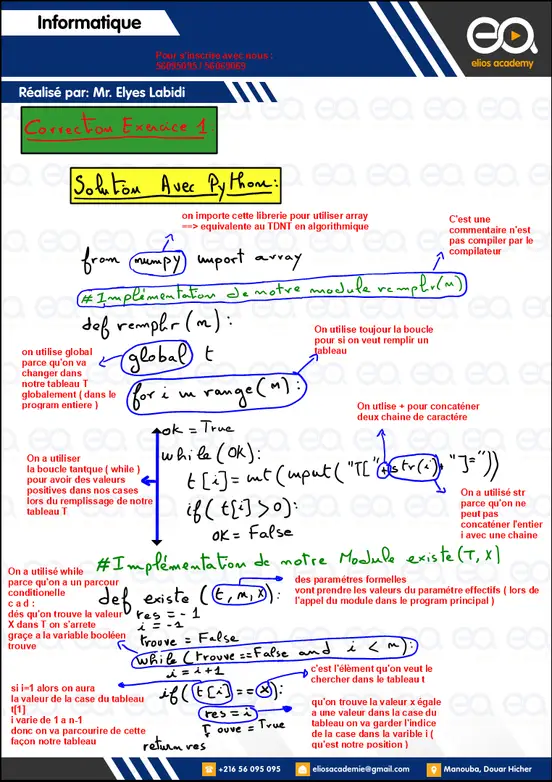 Informatique
Pour s'inscrire avec nous :
56095095 / 56069069
elios academy
Réalisé par: Mr. Elyes Labidi
Correction Exercice 1:
Solution Avec Python:
on importe cette librerie pour utiliser array
==> equivalente au TDNT en algorithmique
C'est une
commentaire n'est
pas compiler par le
compilateur
from numpy import array
#Implémentation de notre module remplir(n)
def remplir (n):
On utilise toujour la boucle
pour si on veut remplir un
tableau
on utilise global
parce qu'on va
changer dans
notre tableau T
globalement ( dans le
program entiere )
global t
for i in range(n):
On utlise + pour concaténer
deux chaine de caractére
ok = True
while (OK):
t[i]=int(input("T["+str(i)+"]="))
if( t[i]>0):
ok = False
On a utiliser
la boucle tantque ( while )
pour avoir des valeurs
positives dans nos cases
lors du remplissage de notre
tableau T
On a utilisé str
parce qu'on ne
peut pas
concaténer l'entier
i avec une chaine
#Implémentation de notre Module existe(T,X)
On a utilisé while
parce qu'on a un parcour
conditionelle
c a d :
dés qu'on trouve la valeur
X dans T on s'arrete
graçe a la variable booléen
trouve
des paramétres formelles
vont prendre les valeurs du paramétre effectifs ( lors de
l'appel du module dans le program principal )
def existe (t,n,x):
res = -1
i = -1
trouve = False
while(trouve==False and i < n):
i = i+1
if( t[i] == x):
res = i
Trouve = True
return res
c'est l'élèment qu'on veut le
chercher dans le tableau t
si i=1 alors on aura
la valeur de la case du tableau
t[1]
i varie de 1 a n-1
donc on va parcourire de cette
façon notre tableau
qu'on trouve la valeur x égale
a une valeur dans la case du
tableau on va garder l'indice
de la case dans la varible i (
qu'est notre position )
+216 56 095 095
eliosacademie@gmail.com
Manouba, Douar Hicher